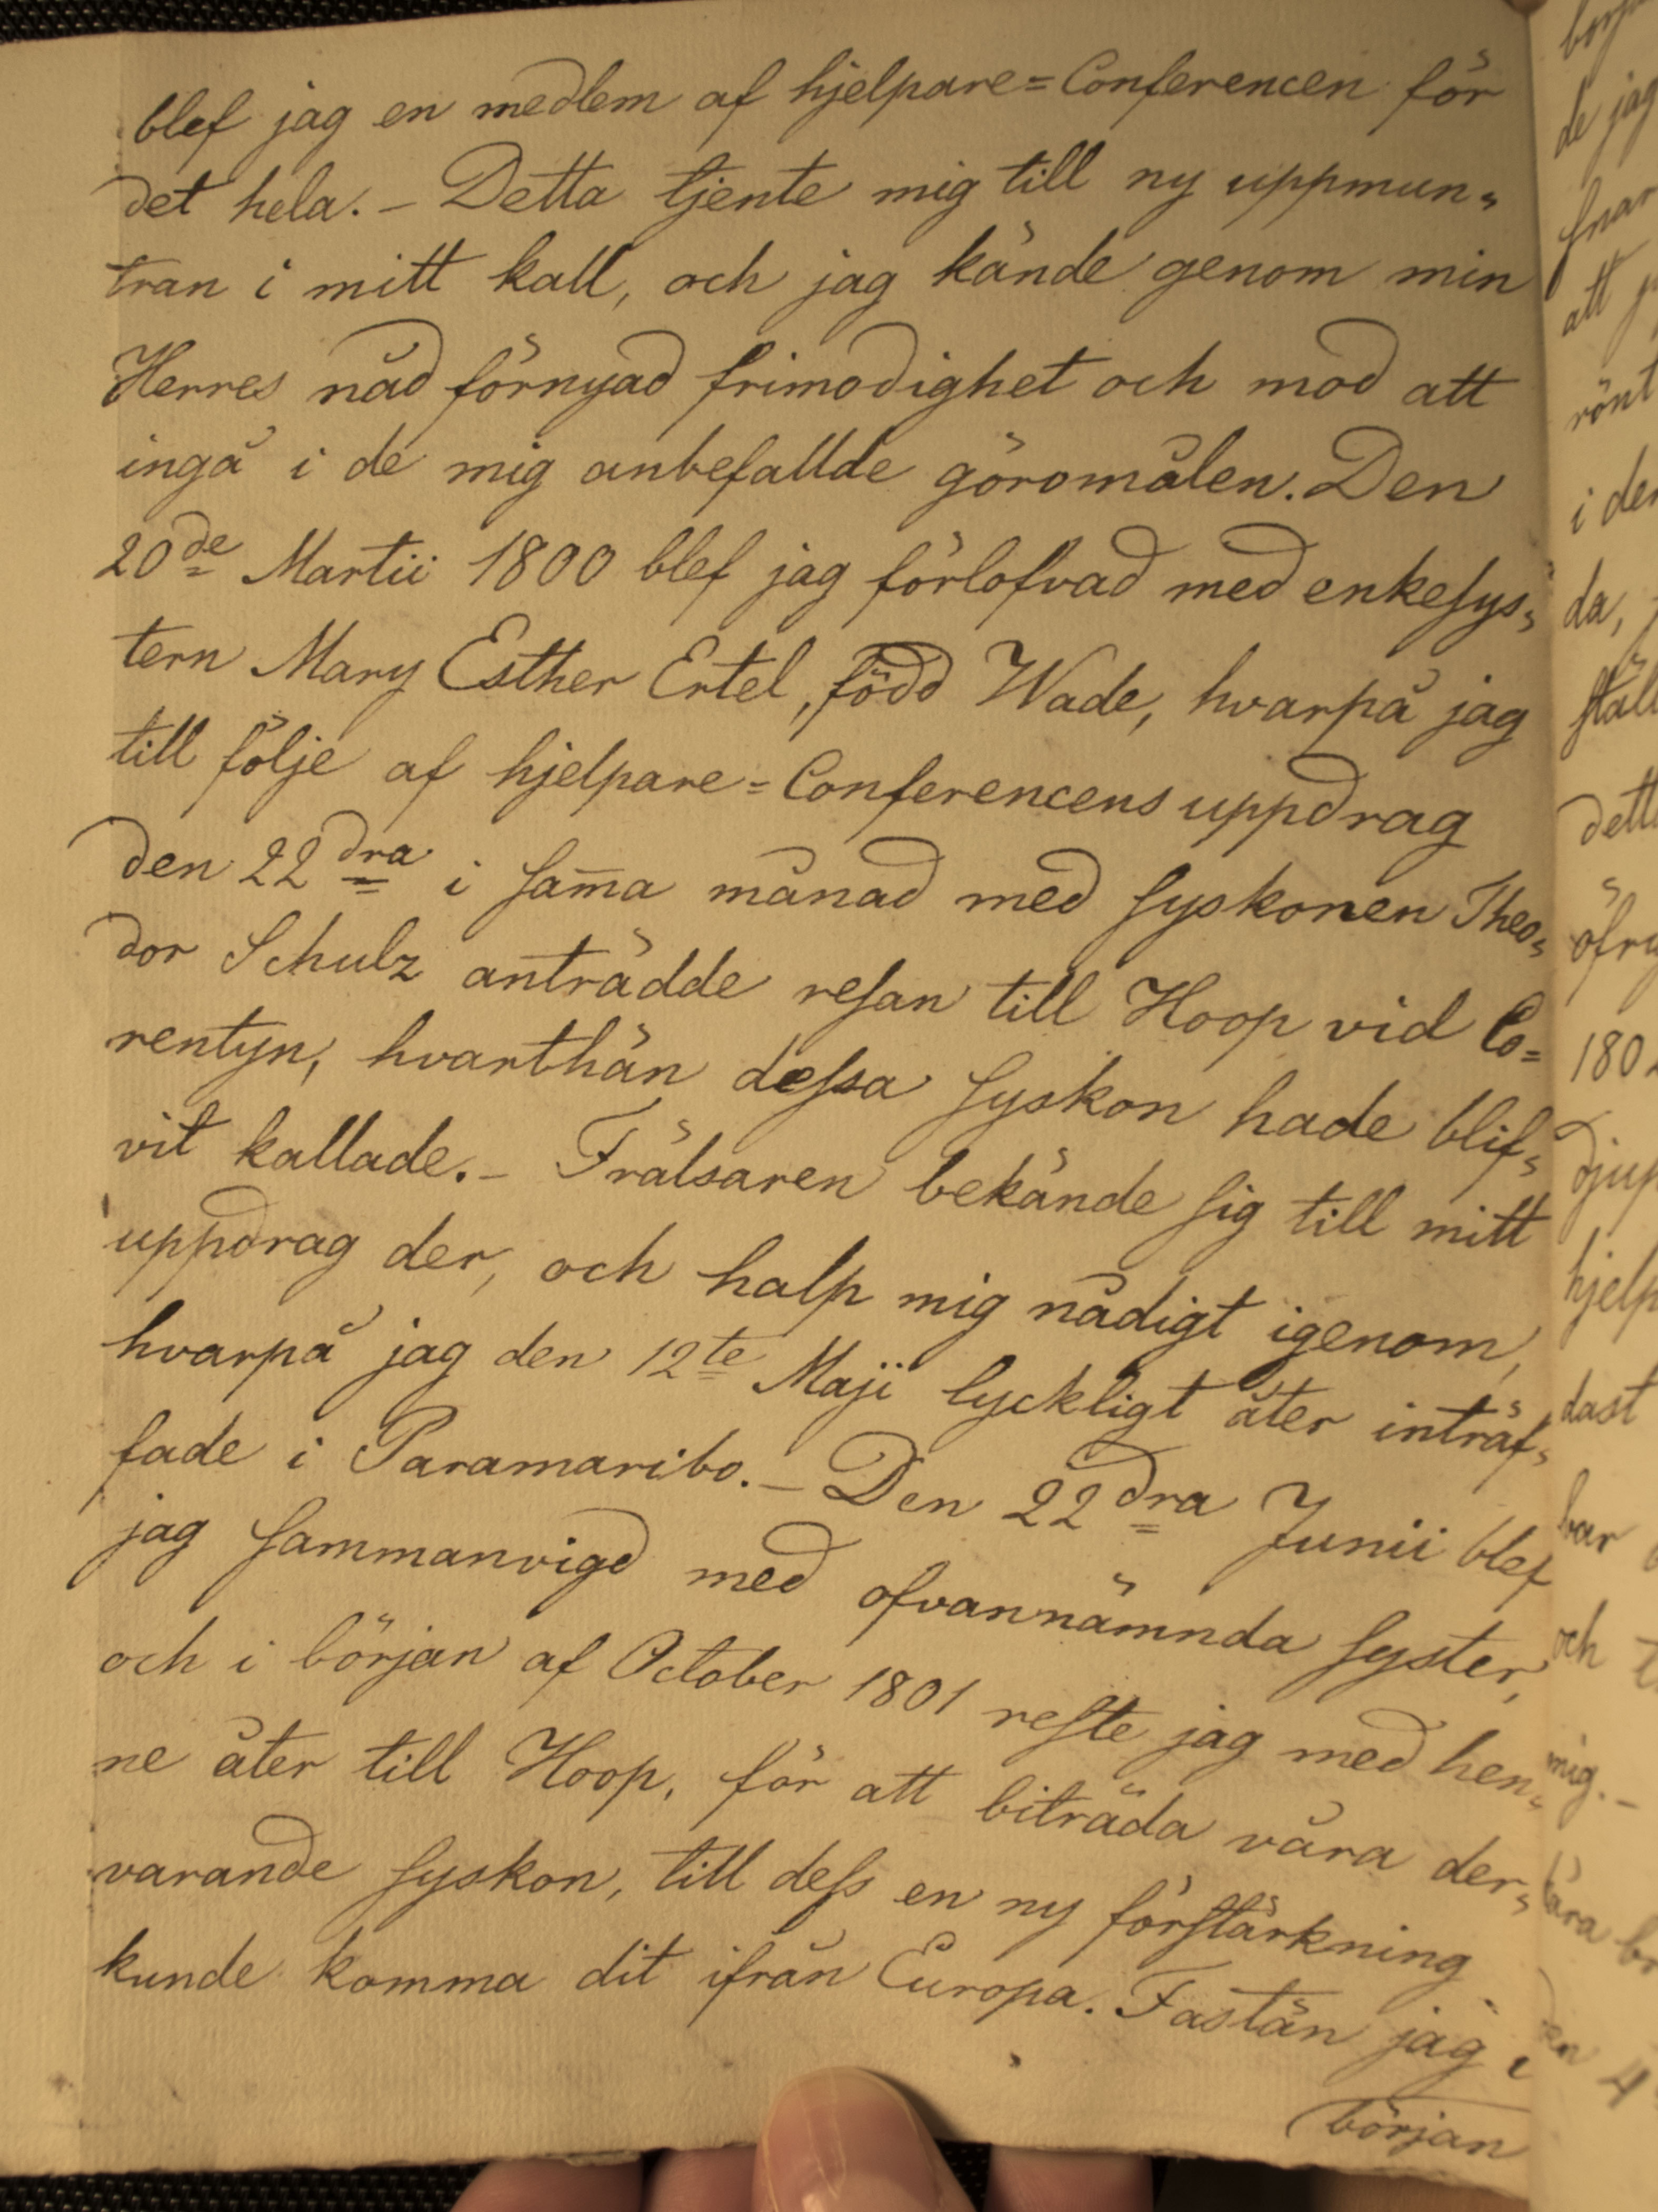 blef jag en medlem af hjelpare=Conferencen för
det hela. – Detta tjente mig till ny uppmun=
tran i mitt kall, och jag kände genom min
Herres nåd förnyad frimodighet och mod att
ingå i de mig anbefallde göromålen. Den
20de Martii 1800 blef jag förlofvad med enkesys=
tern Mary Esther Ertel, född Wade, hvarpå jag
till följe af hjelpare=Conferencens uppdrag
den 22dra i sam̄a månad med syskonen Theo=
dor Schulz anträdde resan till Hoop vid Co=
rentyn, hvarthän dessa syskon hade blif=
vit kallade. – Frälsaren bekände sig till mitt
uppdrag der, och halp mig nådigt igenom,
hvarpå jag den 12te Maji lyckligt åter inträf=
fade i Paramaribo. – Den 22dra Junii blef
jag sammanvigd med ofvannämnda syster,
och i början af October 1801 reste jag med hen=
ne åter till Hoop, för att biträda våra der=
varande syskon, till dess en ny förstärkning
kunde komma dit ifrån Europa. Fastän jag i
början
de jag
att
rönt
i den
da,
180
djup
hjelp
dast
har
och
mig. –